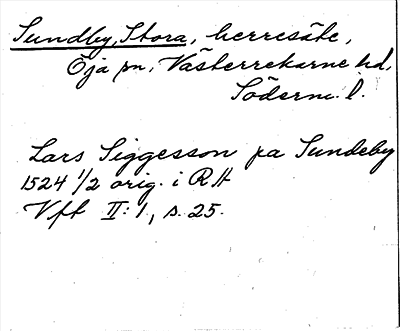 Sundby, Stora, herresäte,
Öja sn, Västerrekarne hd,
Söderm. l.
Lars Siggesson pa Sundeby
1524 1/2 orig. i RA
Vft II:1, s. 25.